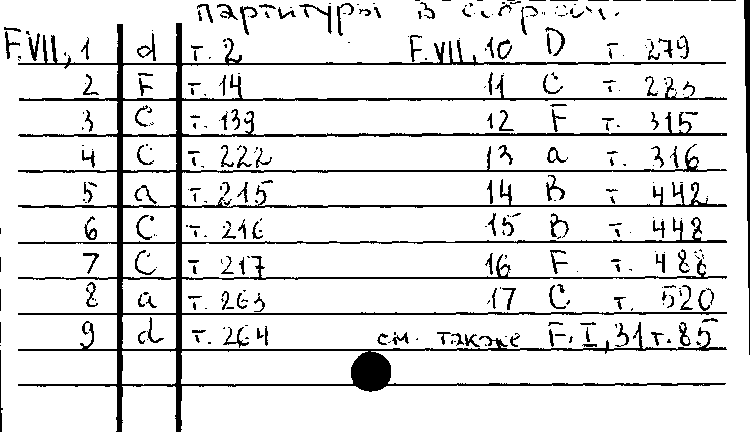 партитуры в собрач.
F.VII, 1 d т. 2 F.VII, 10 D т. 279
2 F т. 14 11 C т. 283
3 C т. 139 12 F т. 315
4 C т. 222 13 a т. 316
5 a т. 215 14 B т 442
6 C т. 216 15 B т. 448
7 C т. 217 16 F т. 488
8 a т. 263 17 C т. 520
9 d т. 264 см. также F.I, 31 т. 85